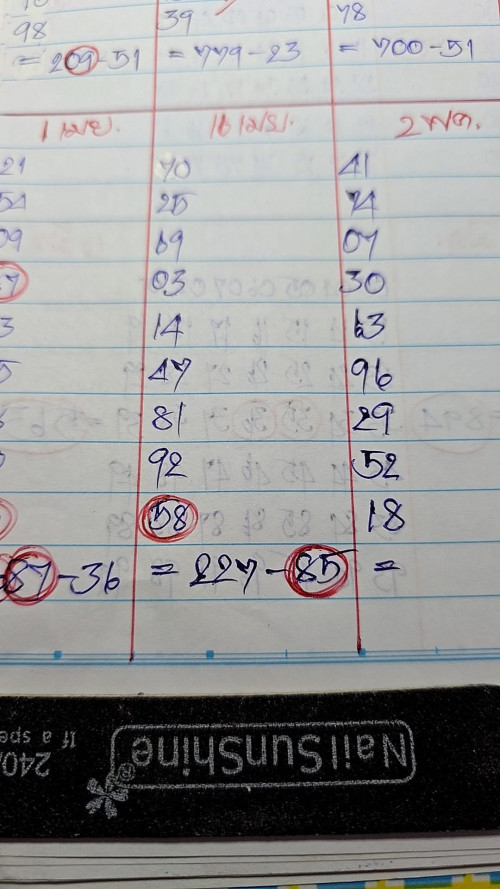 98 39 78
= 209-51 = 779-23 = 700-51
1 เมย. 16 เมย. 2 พค.
21 70 41
54 25 74
09 69 07
03 30
3 14 63
5 47 96
81 29
92 52
58 18
87-36 = 227-85 =
NailSunShine®
240/
If a spe